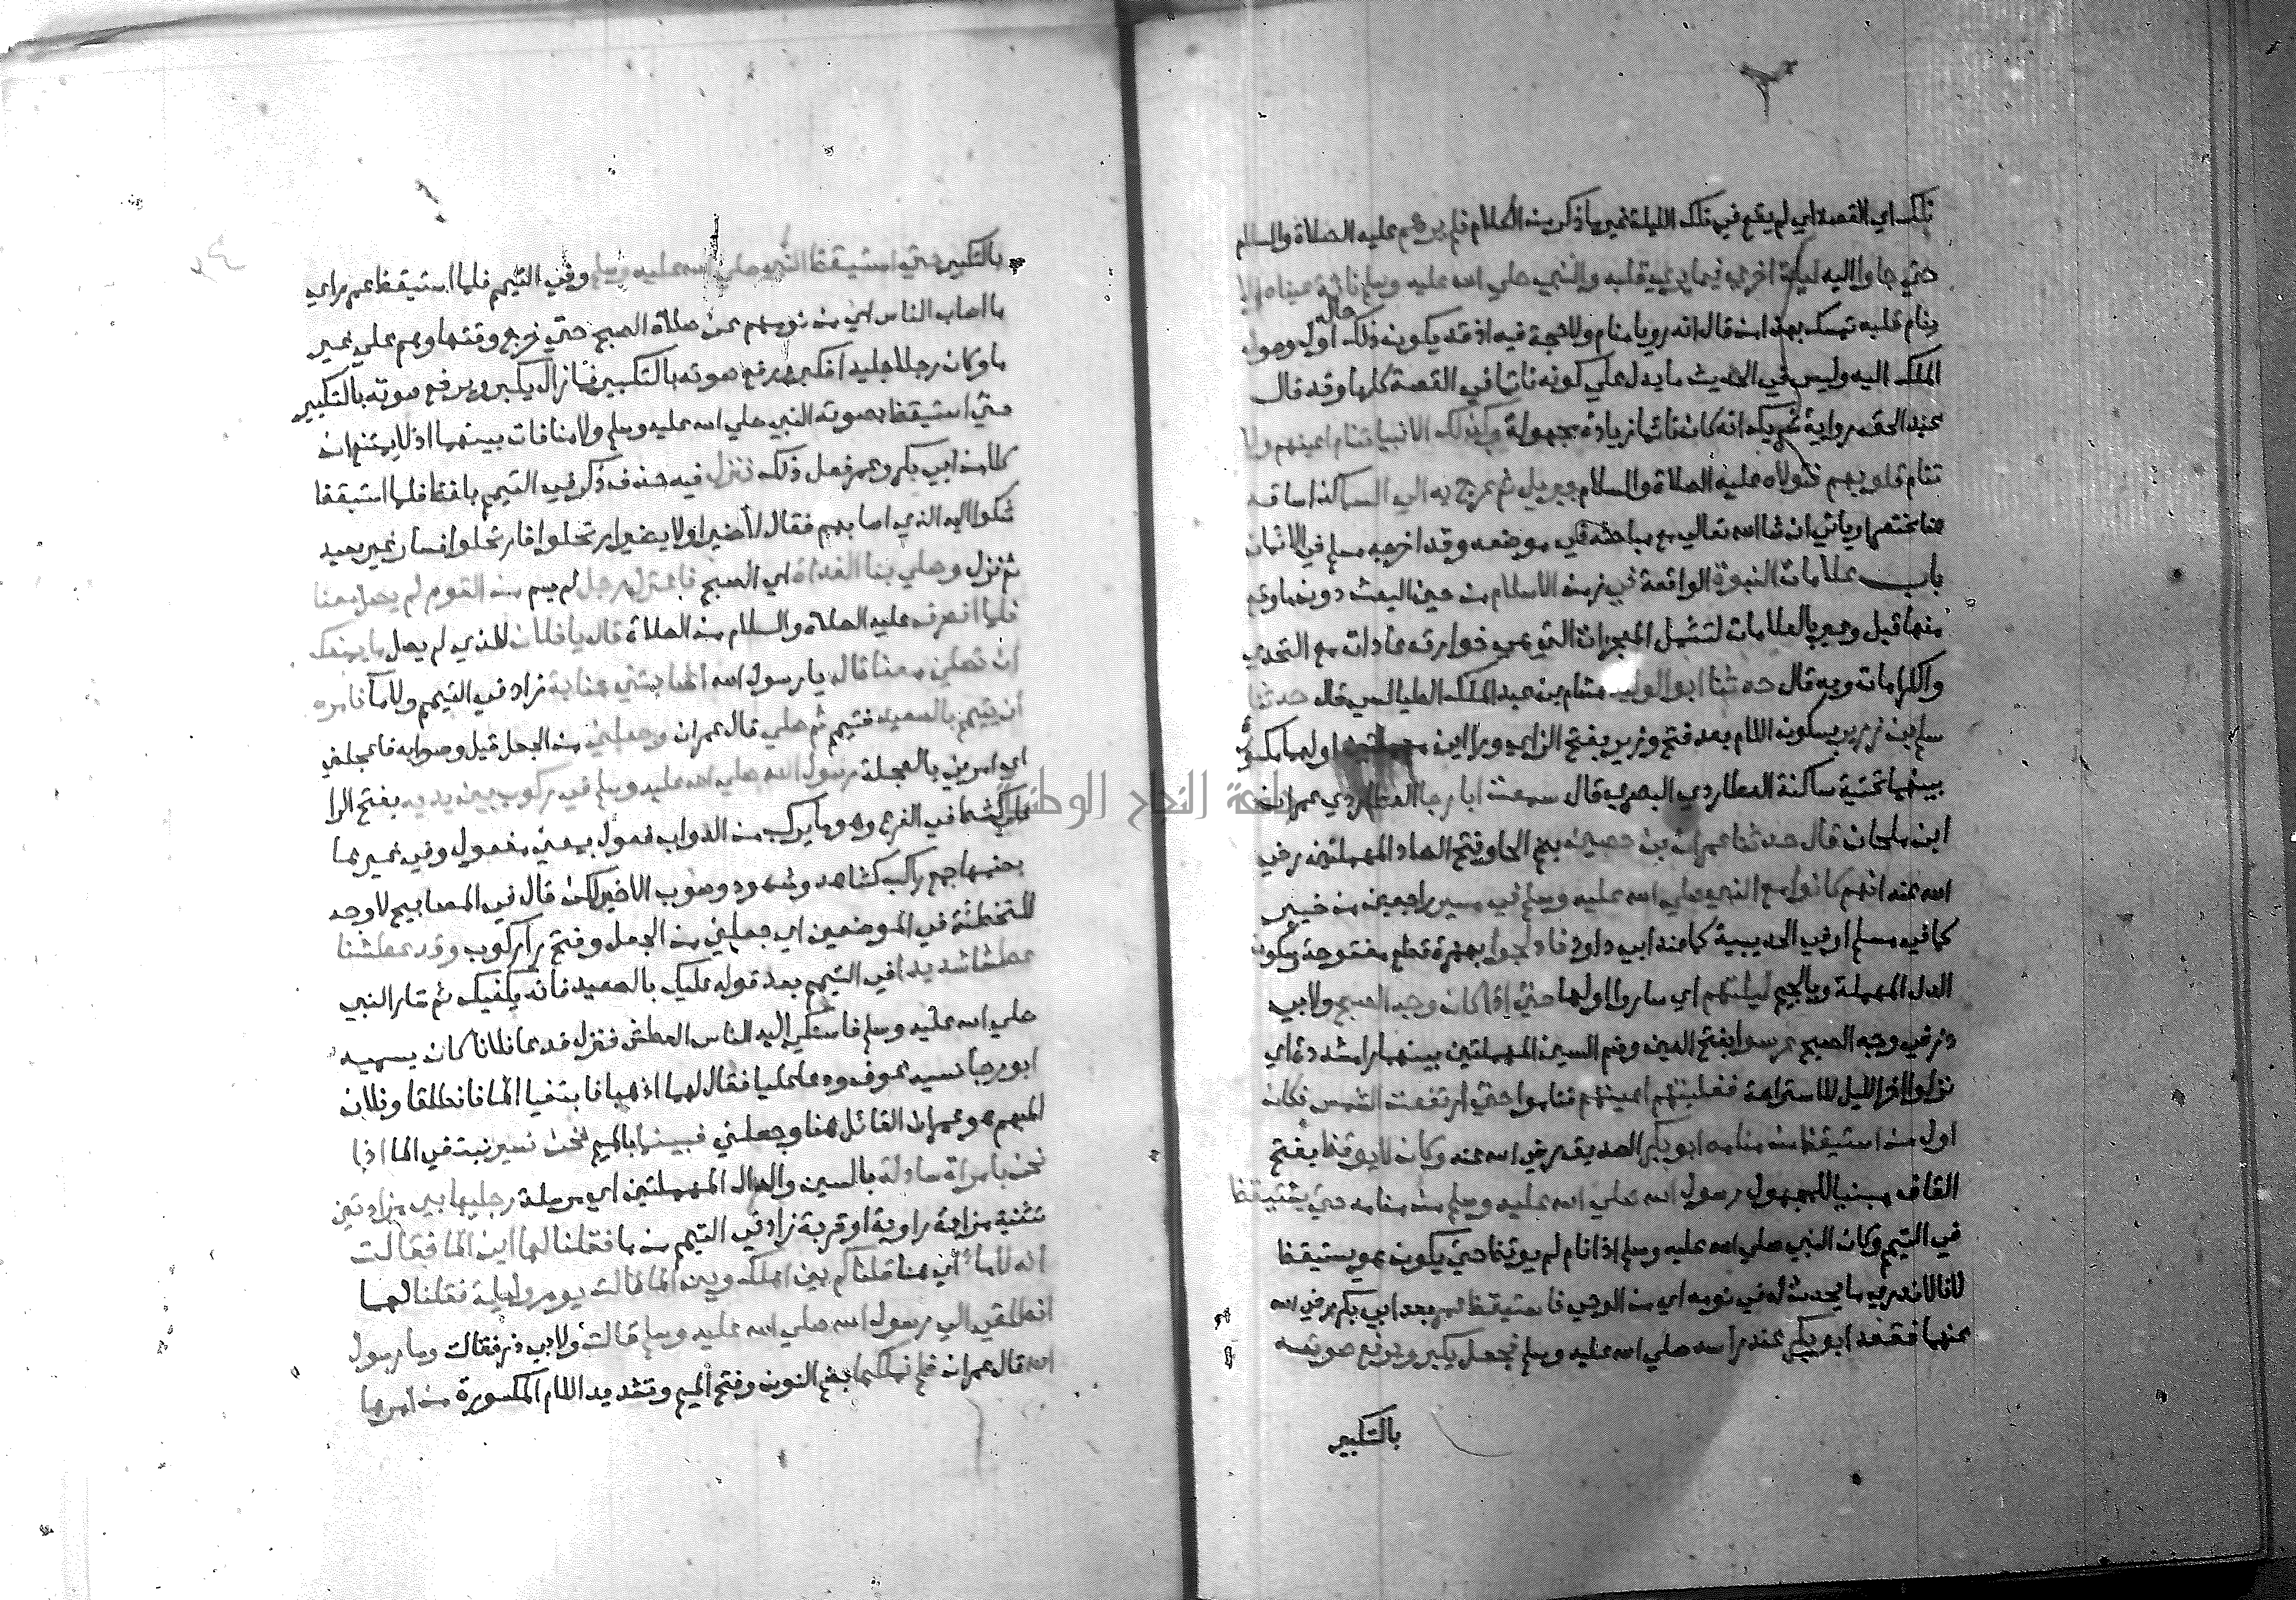 تلك اي القصة اي لم يقع في تلك الليلة غير ما ذكر من الكلام فلم يرهم عليه الصلاة والسلام
حتي جاوا اليه ليلة اخري فيما يري قلبه والنبي صلي الله عليه وسلم نائمة عيناه ولا
ينام قلبه تمسك بهذا من قال انه رويا منام ولا حجة فيه اذ قد يكون ذلك حاله اول وصول
الملك اليه وليس في الحديث ما يدل علي كونه نائما في القصة كلها وقد قال
عبد الحق رواية شريك انه كان نائما زيادة مجهولة وكذلك الانبيا تنام اعينهم ولا
تنام قلوبهم فتولاه عليه الصلاة والسلام جبريل ثم عرج به الي السما كذا ساقه
هنا مختصرا وياتي ان شا الله تعالي مع مباحثه في موضعه وقد اخرجه مسلم في الايمان
باب علامات النبوة الواقعة في زمن الاسلام من حين البعث دون ما وقع
منها قبل وعبر بالعلامات لتشمل المعجزات التي هي خوارق عادات مع التحدي
والكرامات وبه قال حدثنا ابو الوليد هشام بن عبد الملك الطيالسي قال حدثنا
سلم بن زرير بسكون اللام بعد فتح وزرير بفتح الزاي وراين مهملتين اولهما مكسورة
بينهما تحتية ساكنة العطاردي البصري قال سمعت ابا رجا العطاردي عمران
ابن ملحان قال حدثنا عمران بن حصين بضم الحا وفتح الصاد المهملتين رضي
الله عنه انهم كانوا مع النبي صلي الله عليه وسلم في مسير راجعين من خيبر
كما في مسلم او في الحديبية كما عند ابي داود فادلجوا بهمزة قطع مفتوحة وسكون
الدال المهملة وبالجيم ليلتهم اي ساروا اولها حتي اذا كان وجه الصبح ولابي
ذر في وجه الصبح عرسوا بفتح العين وضم السين المهملتين بينهما را مشددة اي
نزلوا اخر الليل للاستراحة فغلبتهم اعينهم فناموا حتي ارتفعت الشمس فكان
اول من استيقظ من منامه ابو بكر الصديق رضي الله عنه وكان لا يوقظ بفتح
القاف مبنيا للمجهول رسول الله صلي الله عليه وسلم من منامه حتي يستيقظ
في التيمم وكان النبي صلي الله عليه وسلم اذا نام لم يوقظ حتي يكون هو يستيقظ
لانا لا ندري ما يحدث له في نومه اي من الوحي فاستيقظ عمر بعد ابي بكر رضي الله
عنهما فقعد ابو بكر عند راسه صلي الله عليه وسلم فجعل يكبر ويرفع صوته
بالتكبير
بالتكبير حتي استيقظ النبي صلي الله عليه وسلم وفي التيمم فلما استيقظ عمر وراي
ما اصاب الناس اي من نومهم عن صلاة الصبح حتي خرج وقتها وهم علي غير
ما وكان رجلا جليدا فكبر ورفع صوته بالتكبير فما زال يكبر ويرفع صوته بالتكبير
حتي استيقظ بصوته النبي صلي الله عليه وسلم ولا منافات بينهما اذ لا يمتنع ان
كلا من ابي بكر وعمر فعل ذلك فنزل فيه حذف ذكر في التيمم بلفظ فلما استيقظ
شكوا اليه الذي اصابهم فقال لا ضير او لا يضير ارتحلوا فارتحلوا فسار غير بعيد
ثم نزل وصلي بنا الغداة اي الصبح فاعتزل رجل لم يسم من القوم لم يصل معنا
فلما انصرف عليه الصلاة والسلام من الصلاة قال يا فلان للذي لم يصل ما يمنعك
ان تصلي معنا قال يا رسول الله اصابتني جنابة زاد في التيمم ولا ما فامره
ان يتيمم بالصعيد فتيمم ثم صلي قال عمران وجعلني من الجعل قيل وصوابه فاعجلني
اي امرني بالعجلة رسول الله صلي الله عليه وسلم في ركوب بين يديه بفتح الرا
علي كشط في الفرع وهو ما يركب من الدواب فعول بمعني مفعول وفي غيرها
بضمها جمع راكب كشاهد وشهود وصوب الاخير لكن قال في المصابيح لا وجه
للتخطئة في الموضعين اي جعلني من الجعل وفتح را ركوب وقد عطشنا
عطشا شديدا في التيمم بعد قوله عليك بالصعيد فانه يكفيك ثم سار النبي
صلي الله عليه وسلم فاشتكي اليه الناس العطش فنزل فدعا فلانا كان يسميه
ابو رجا نسيه عوف ودعا عليا فقال لهما اذهبا فابتغيا الما فانطلقا وفلان
المبهم هو عمران القائل هنا وجعلني فبينما بالميم نحن نسير نبتغي الما اذا
نحن بامراة سادلة بالسين والدال المهملتين اي مرسلة رجليها بين مزادتين
تثنية مزادة راوية او قربة زاد في التيمم من ما فقلنا لها اين الما فقالت
انه لا ما اي هنا قلنا كم بين اهلك وبين الما قالت يوم وليلة فقلنا لها
انطلقي الي رسول الله صلي الله عليه وسلم قالت ولابي ذر فقالت وما رسول
الله قال عمران فلم نملكها بضم النون وفتح الميم وتشديد اللام المكسورة من امرها
جامعة النجاح الوطنية